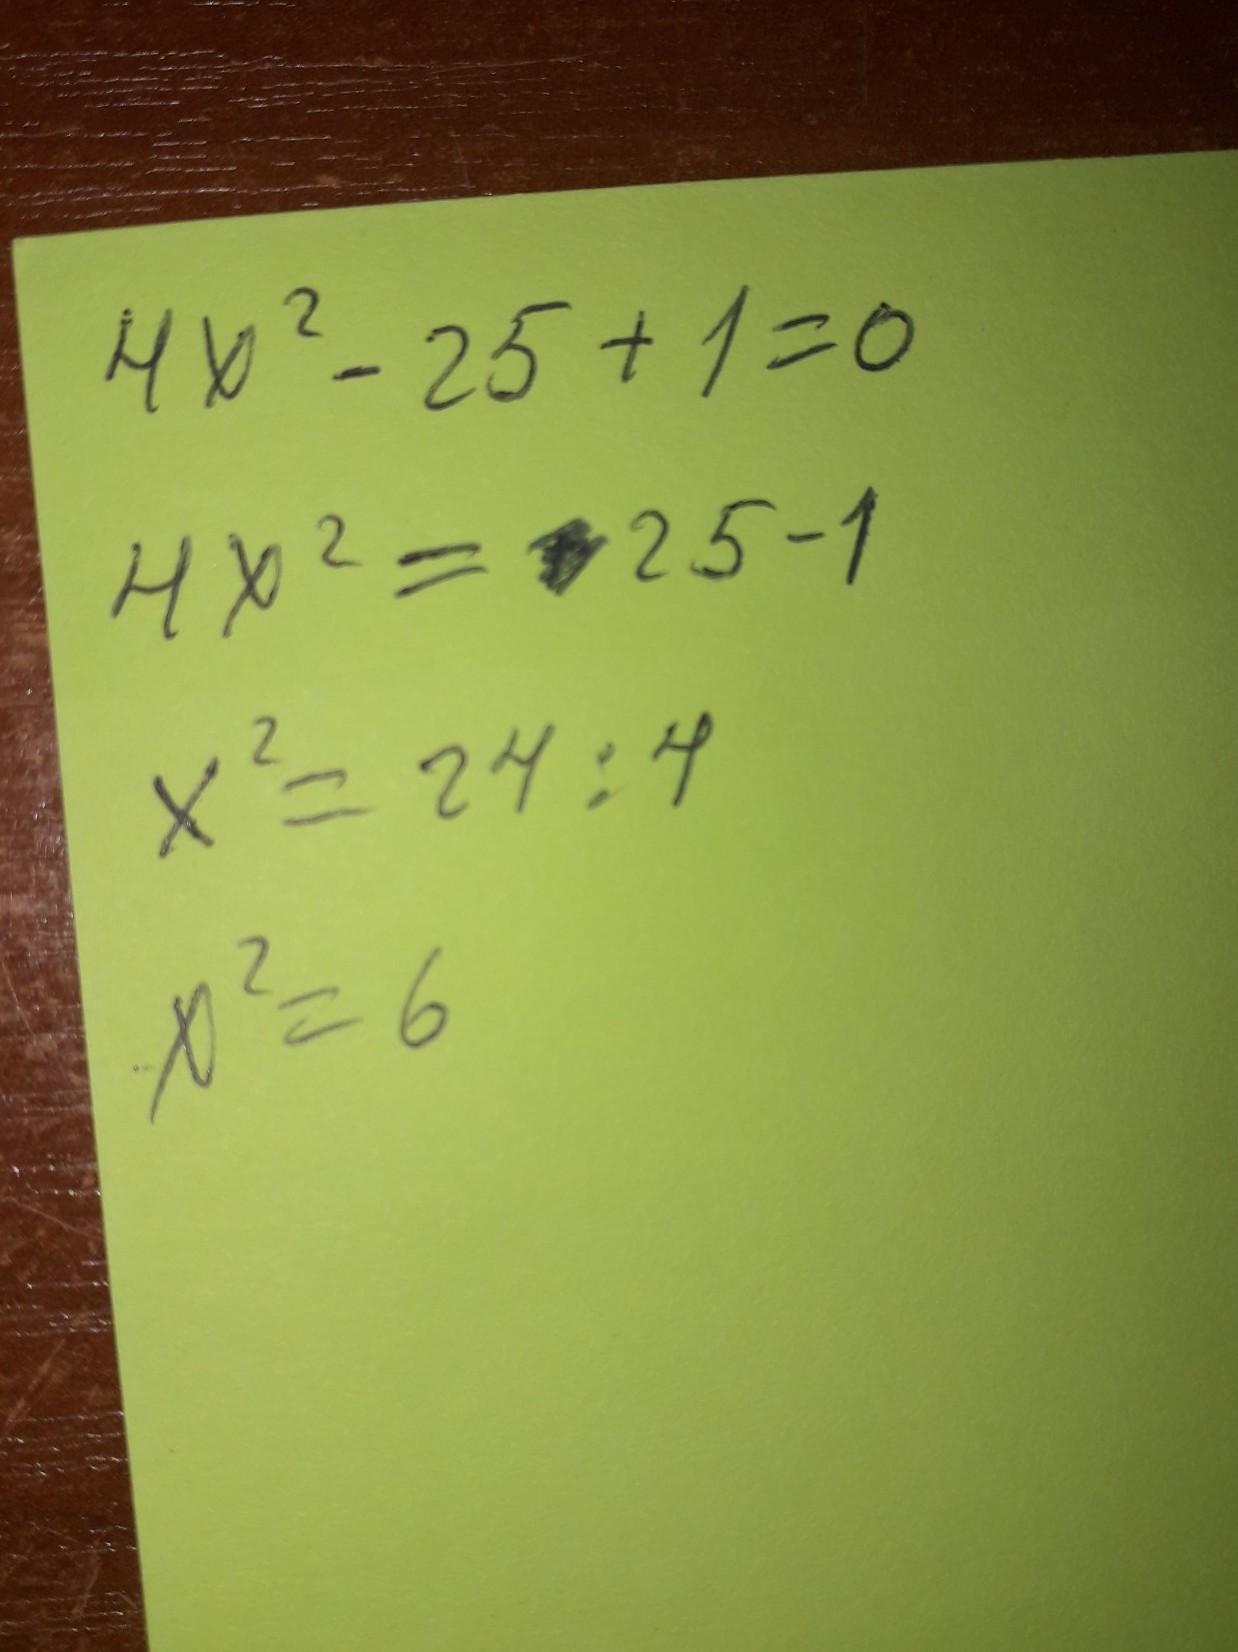 4x² - 25 + 1 = 0
4x² = 25 - 1
x² = 24 : 4
x² = 6